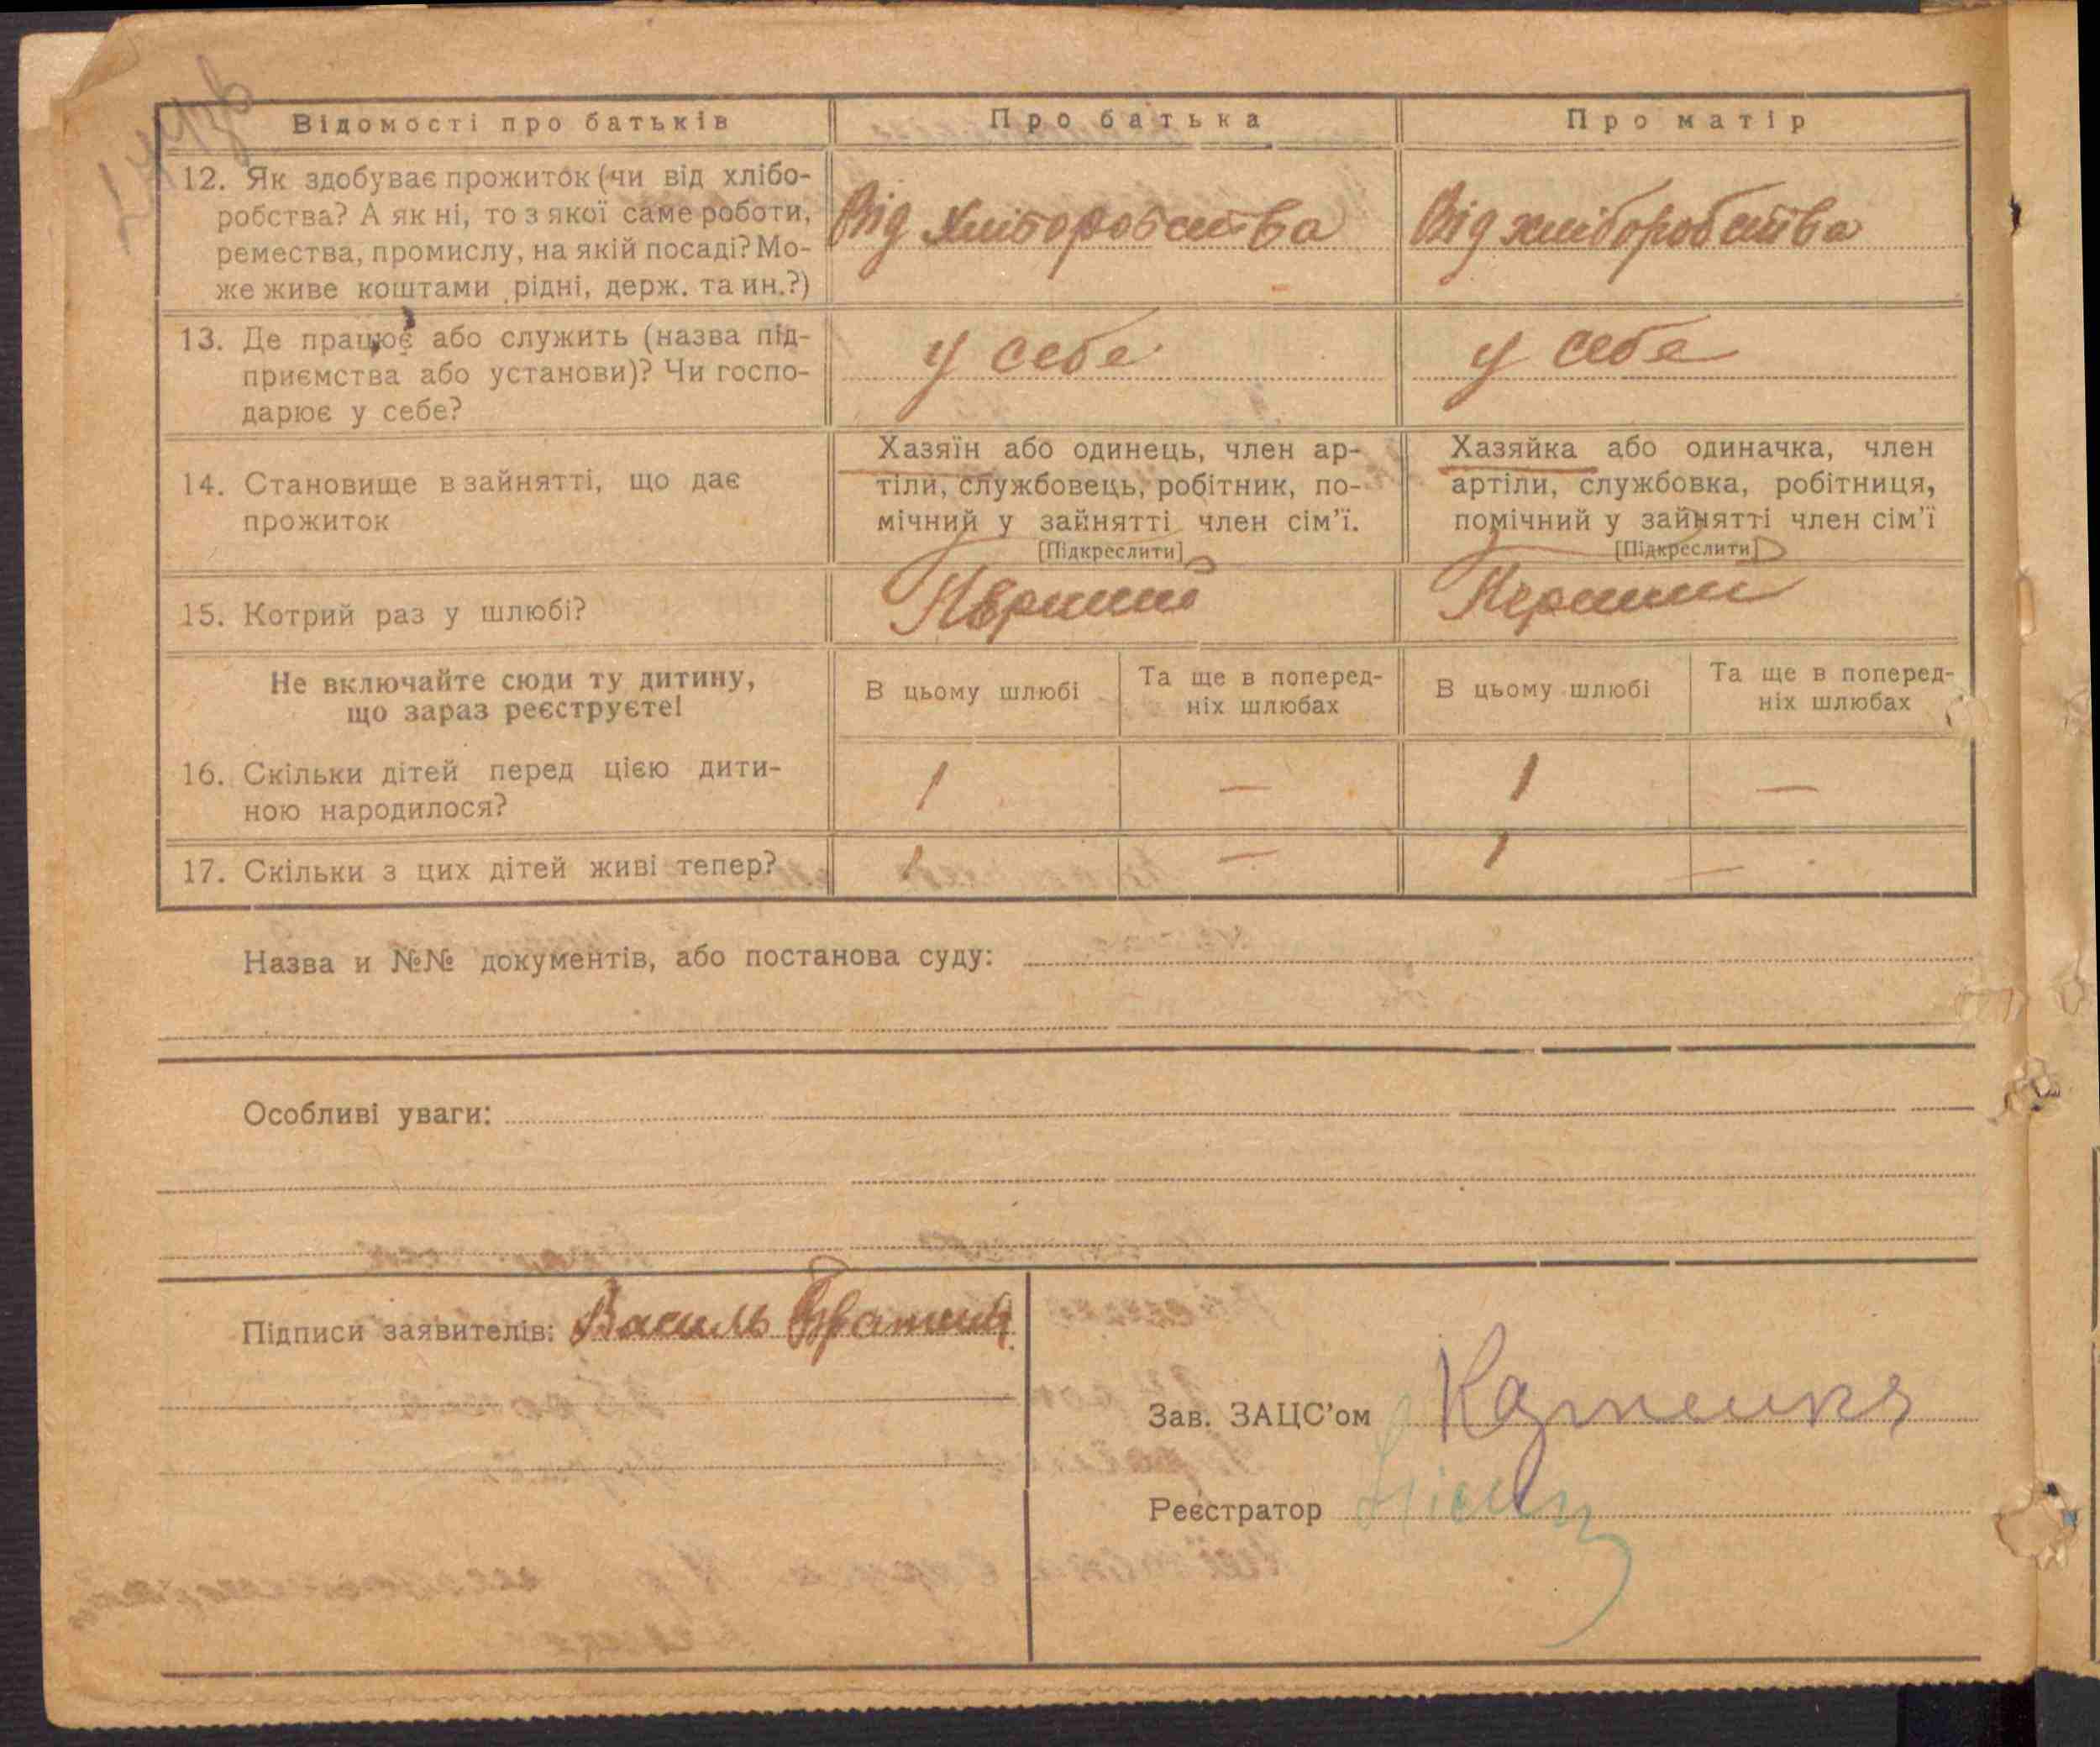 Відомості про батьків Про батька Про матір
12. Як здобуває прожиток (чи від хлібо-
робства? А як ні, то з якої саме роботи,
ремества, промислу, на якій посаді? Мо-
же живе коштами рідні, держ. та ин.?)
Від хліборобства Від хліборобства
13. Де працює або служить (назва під-
приємства або установи)? Чи госпо-
дарює у себе?
у себе у себе
14. Становище в зайнятті, що дає
прожиток
Хазяїн або одинець, член ар-
тіли, службовець, робітник, по-
мічний у зайнятті член сім'ї.
[Підкреслити]
Хазяйка або одиначка, член
артіли, службовка, робітниця,
помічний у зайнятті член сім'ї
[Підкреслити]
15. Котрий раз у шлюбі? Перший Перший
Не включайте сюди ту дитину,
що зараз реєструєте!
В цьому шлюбі
Та ще в поперед-
ніх шлюбах
В цьому шлюбі
Та ще в поперед-
ніх шлюбах
16. Скільки дітей перед цією дити-
ною народилося?
1 — 1 —
17. Скільки з цих дітей живі тепер? 1 — 1 —
Назва и №№ документів, або постанова суду:
Особливі уваги:
Підписи заявителів: Василь
Зав. ЗАЦС'ом
Реєстратор